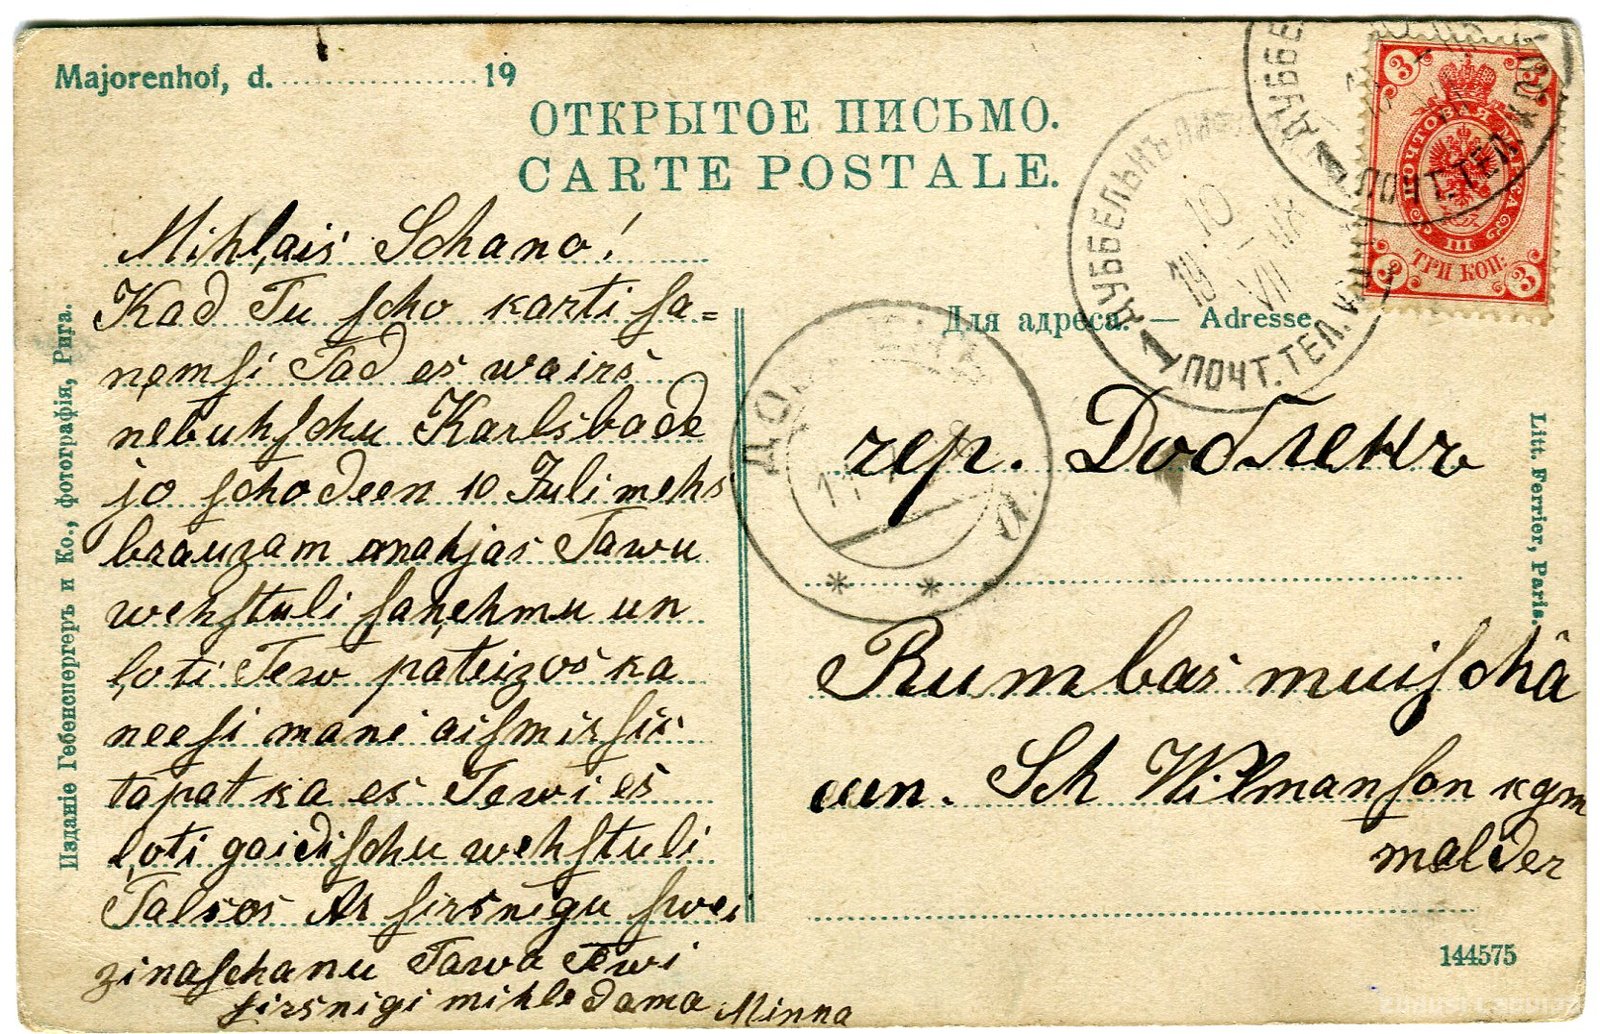 Majorenhof, d. 19
ОТКРЫТОЕ ПИСЬМО.
CARTE POSTALE.
Mihļais Schano!
Kad Tu scho karti sa=
ņemsi Tad es wairs
nebuhschu Karlsbadē
jo schodeen 10 Juli mehs
brauzam mahjas Tawu
wehstuli saņehmu un
ļoti Tew pateizos ka
neesi mani aismirsis
tapat ka es Tewi es
ļoti gaidischu wehstuli
Talsos Ar sirsnigu swei
zinaschanu Tawa Tewi
sirsnigi mihledama Minna
Изданіе Гебенспергеръ и Ко., фотографія, Рига.
Для адреса. — Adresse.
чер. Добленъ
Rumbas muischâ
Sch Wilmanson kgm
malder
Litt. Ferrier, Paris.
144575
ДУББЕЛЬНЪ
1 ПОЧТ. ТЕЛ.
10
VII
1 ПОЧТ. ТЕЛ.
ПОЧТОВАЯ МАРКА
III
ТРИ КОП.
3 3 3 3